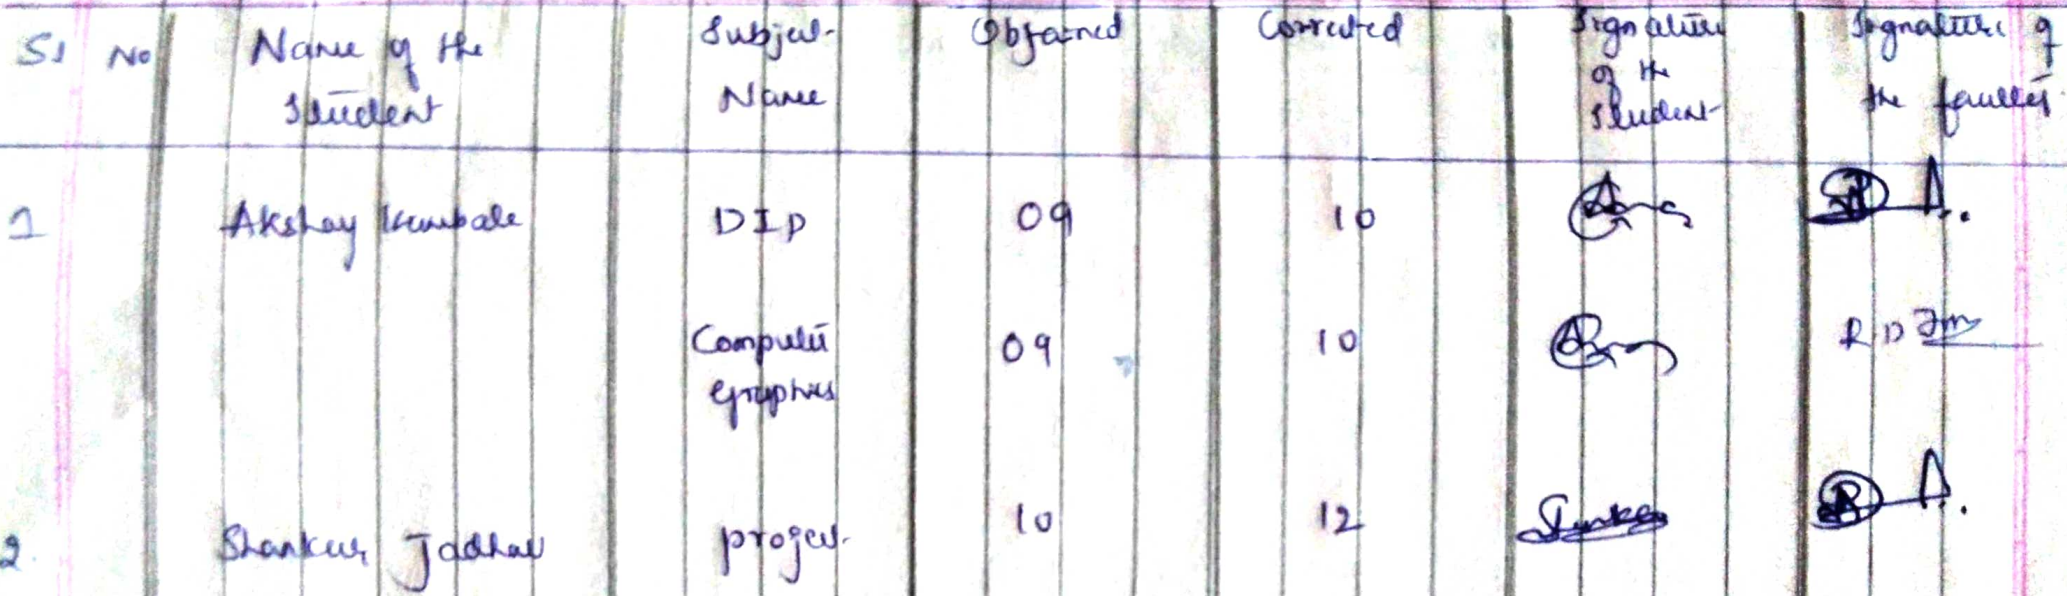 Sl No Name of the Student Subject Name Obtained Corrected Signature of the Student Signature of the faculty
1 Akshay Kumbale DIP 09 10
Computer Graphics 09 10 R D
2. Shankar Jadhav project 10 12